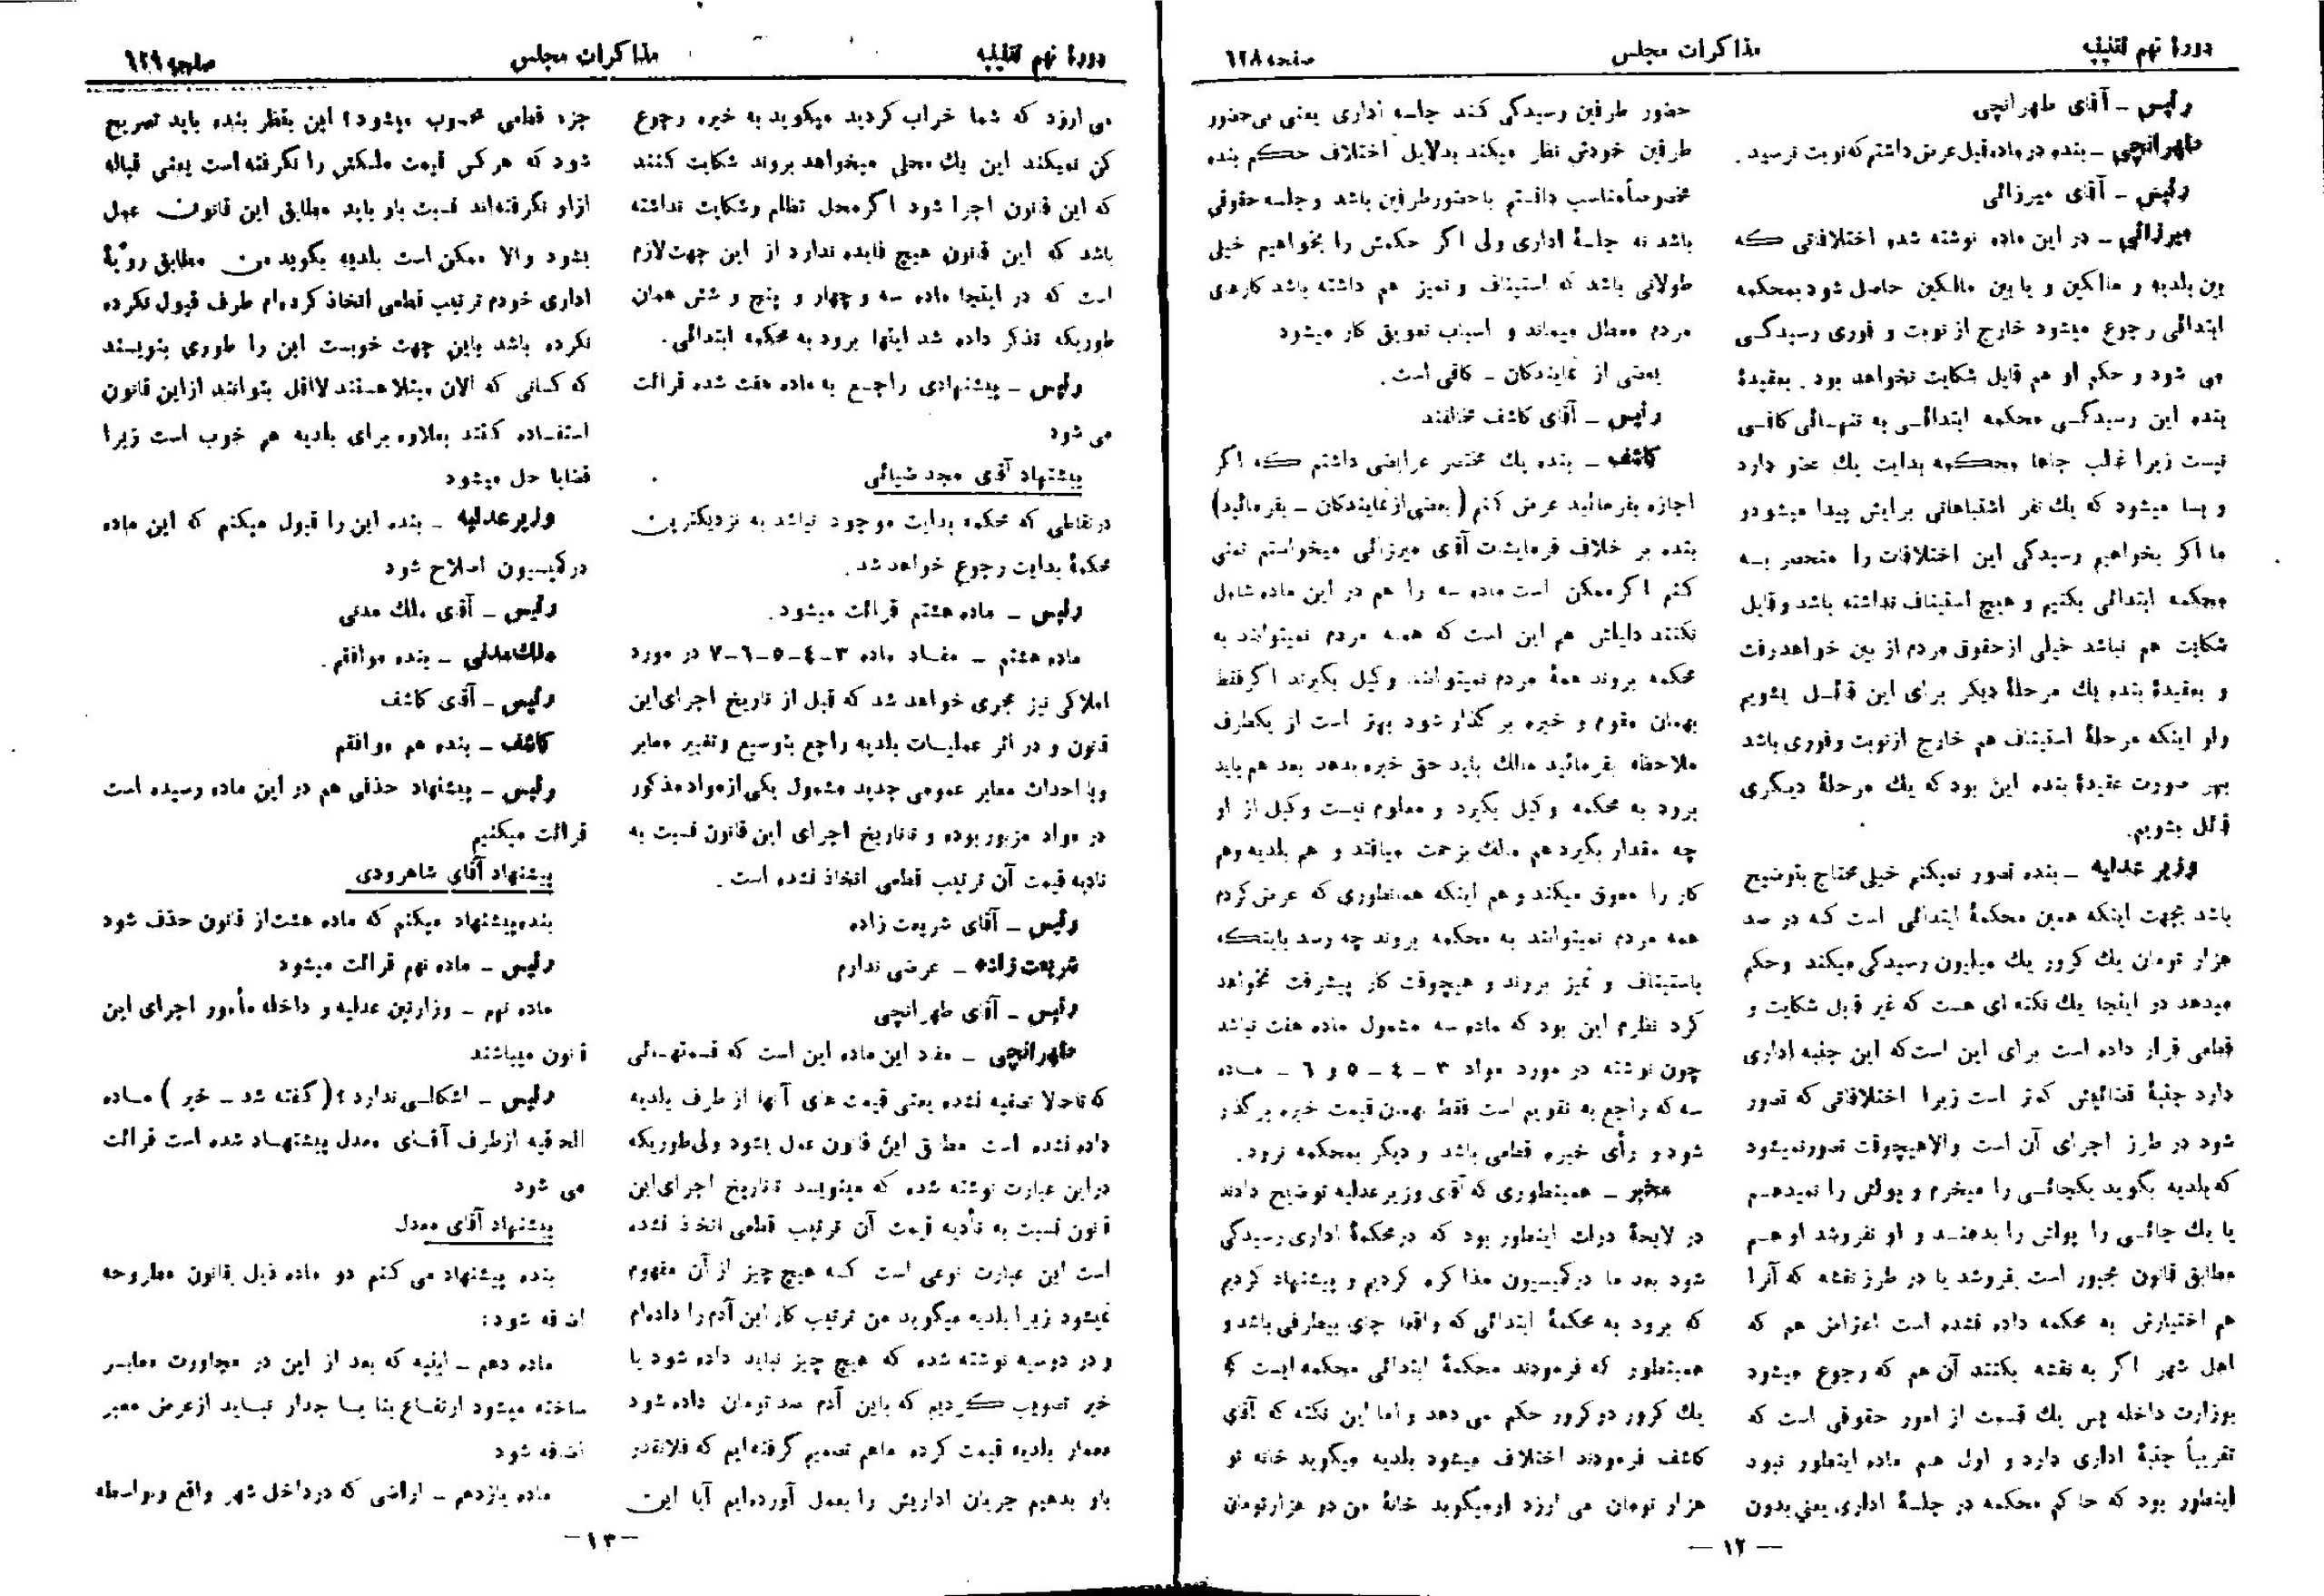 دورهٔ نهم تقنینیه
مذاکرات مجلس
صفحه ٦٢٨
رئیس ـ آقای طهرانچی
طهرانچی ـ بنده در ماده قبل عرض داشتم که نوبت نرسید.
رئیس ـ آقای میرزائی
میرزائی ـ در این ماده نوشته شده اختلافاتی که
بین بلدیه و مالکین و یا بین مالکین حاصل شود بمحکمه
ابتدائی رجوع میشود خارج از نوبت و فوری رسیدگی
می شود و حکم او هم قابل شکایت نخواهد بود. بعقیدهٔ
بنده این رسیدگی محکمه ابتدائی به تنهائی کافی
نیست زیرا غالب جاها محکمه بدایت یك عضو دارد
و بسا میشود که یك نفر اشتباهاتی برایش پیدا میشود و
ما اگر بخواهیم رسیدگی این اختلافات را منحصر به
محکمه ابتدائی بکنیم و هیچ استیناف نداشته باشد و قابل
شکایت هم نباشد خیلی از حقوق مردم از بین خواهد رفت
و بعقیدهٔ بنده یك مرحلهٔ دیگر برای این قائل بشویم
ولو اینکه مرحلهٔ استیناف هم خارج از نوبت و فوری باشد
بهر صورت عقیدهٔ بنده این بود که یك مرحلهٔ دیگری
قائل بشویم.
وزیر عدلیه ـ بنده تصور نمیکنم خیلی محتاج بتوضیح
باشد بجهت اینکه همین محکمهٔ ابتدائی است که در صد
هزار تومان یك کرور یك میلیون رسیدگی میکند و حکم
میدهد در اینجا یك نکته ای هست که غیر قابل شکایت و
قطعی قرار داده است برای این است که این جنبه اداری
دارد جنبهٔ قضائیش کمتر است زیرا اختلافاتی که تصور
شود در طرز اجرای آن است والا هیچوقت تصور نمیشود
که بلدیه بگوید یکجائی را میخرم و پولش را نمیدهم
یا یك جائی را پولش را بدهند و او نفروشد او هم
مطابق قانون مجبور است بفروشد یا در طرز نقشه که آنرا
هم اختیارش به محکمه داده نشده است اعتراض هم که
اهل شهر اگر به نقشه بکنند آن هم که رجوع میشود
بوزارت داخله پس یك قسمت از امور حقوقی است که
تقریباً جنبهٔ اداری دارد و اول هم ماده اینطور نبود
اینطور بود که حاکم محکمه در جلسهٔ اداری یعنی بدون
حضور طرفین رسیدگی کند جلسه اداری یعنی بی حضور
طرفین خودش نظر میکند بدلایل اختلاف حکم بنده
مخصوصاً مناسب دانستم با حضور طرفین باشد و جلسه حقوقی
باشد نه جلسهٔ اداری ولی اگر حکمش را بخواهیم خیلی
طولانی باشد که استیناف و تمیز هم داشته باشد کارهای
مردم معطل میماند و اسباب تعویق کار میشود
بعضی از نمایندگان ـ کافی است.
رئیس ـ آقای کاشف مخالفند
کاشف ـ بنده یك مختصر عرایضی داشتم که اگر
اجازه بفرمائید عرض کنم (بعضی از نمایندگان ـ بفرمائید)
بنده بر خلاف فرمایشات آقای میرزائی میخواستم تمنی
کنم اگر ممکن است ماده سه را هم در این ماده شامل
نکنند دلیلش هم این است که همه مردم نمیتوانند به
محکمه بروند همهٔ مردم نمیتوانند وکیل بگیرند اگر فقط
بهمان مقوم و خبره برگذار شود بهتر است از یکطرف
ملاحظه بفرمائید مالك باید حق خبره بدهد بعد هم باید
برود به محکمه وکیل بگیرد و معلوم نیست وکیل از او
چه مقدار بگیرد هم مالك بزحمت میافتد و هم بلدیه و هم
کار را معوق میکند و هم اینکه همانطوری که عرض کردم
همه مردم نمیتوانند به محکمه بروند چه رسد باینکه
باستیناف و تمیز بروند و هیچوقت کار پیشرفت نخواهد
کرد نظرم این بود که ماده سه مشمول ماده هفت نباشد
چون نوشته در مورد مواد ٣ ـ ٤ ـ ٥ و ٦ ـ ماده
سه که راجع به تقویم است فقط بهمان قیمت خبره برگذار
شود و رأی خبره قطعی باشد و دیگر بمحکمه نرود.
مخبر ـ همینطوری که آقای وزیر عدلیه توضیح دادند
در لایحهٔ دولت اینطور بود که در محکمهٔ اداری رسیدگی
شود بعد ما در کمیسیون مذاکره کردیم و پیشنهاد کردیم
که برود به محکمهٔ ابتدائی که واقعا جای بیطرفی باشد و
همینطور که فرمودند محکمهٔ ابتدائی محکمه ایست که
یك کرور دو کرور حکم می دهد و اما این نکته که آقای
کاشف فرمودند اختلاف میشود بلدیه میگوید خانه تو
هزار تومان می ارزد او میگوید خانهٔ من دو هزار تومان
ـ ١٢ ـ
دورهٔ نهم تقنینیه
مذاکرات مجلس
صفحه ٦٢٩
می ارزد که شما خراب کردید میگوید به خبره رجوع
کن نمیکند این یك محلی میخواهد بروند شکایت کنند
که این قانون اجرا شود اگر محل تظلم و شکایت نداشته
باشد که این قانون هیچ فایده ندارد از این جهت لازم
است که در اینجا ماده سه و چهار و پنج و شش همان
طوریکه تذکر داده شد اینها برود به محکمه ابتدائی.
رئیس ـ پیشنهادی راجع به ماده هفت شده قرائت
می شود
پیشنهاد آقای مجد ضیائی
در نقاطی که محکمه بدایت موجود نباشد به نزدیکترین
محکمهٔ بدایت رجوع خواهد شد.
رئیس ـ ماده هشتم قرائت میشود.
ماده هشتم ـ مفاد ماده ٣-٤-٥-٦-٧ در مورد
املاکی نیز مجری خواهد شد که قبل از تاریخ اجرای این
قانون و در اثر عملیات بلدیه راجع بتوسیع و تغییر معابر
و یا احداث معابر عمومی جدید مشمول یکی از مواد مذکور
در مواد مزبور بوده و تا تاریخ اجرای این قانون نسبت به
تادیه قیمت آن ترتیب قطعی اتخاذ نشده است.
رئیس ـ آقای شریعت زاده
شریعت زاده ـ عرضی ندارم
رئیس ـ آقای طهرانچی
طهرانچی ـ مفاد این ماده این است که قسمتهائی
که تا حالا تصفیه نشده یعنی قیمت های آنها از طرف بلدیه
داده نشده است مطابق این قانون عمل بشود ولی طوریکه
در این عبارت نوشته شده که مینویسد تا تاریخ اجرای این
قانون نسبت به تأدیه قیمت آن ترتیب قطعی اتخاذ نشده
است این عبارت نوعی است که هیچ چیز از آن مفهوم
نمیشود زیرا بلدیه میگوید من ترتیب کار این آدم را داده‌ام
و در دوسیه نوشته شده که هیچ چیز نباید داده شود یا
خیر تصویب کردیم که باین آدم صد تومان داده شود
معمار بلدیه قیمت کرده ماهم تصمیم گرفته‌ایم که فلانقدر
باو بدهیم جریان اداریش را بعمل آورده‌ایم آیا این
جزء قطعی محسوب میشود؟ این بنظر بنده باید تصریح
شود که هر کس قیمت ملکش را نگرفته است یعنی قباله
ازاو نگرفته‌اند نسبت باو باید مطابق این قانون عمل
بشود والا ممکن است بلدیه بگوید من مطابق رویّهٔ
اداری خودم ترتیب قطعی اتخاذ کرده‌ام طرف قبول نکرده
نکرده باشد باین جهت خوبست این را طوری بنویسند
که کسانی که الان مبتلا هستند لااقل بتوانند از این قانون
استفاده کنند بعلاوه برای بلدیه هم خوب است زیرا
قضایا حل میشود
وزیر عدلیه ـ بنده این را قبول میکنم که این ماده
در کمیسیون اصلاح شود
رئیس ـ آقای ملك مدنی
ملك مدنی ـ بنده موافقم.
رئیس ـ آقای کاشف
کاشف ـ بنده هم موافقم
رئیس ـ پیشنهاد حذفی هم در این ماده رسیده است
قرائت میکنیم
پیشنهاد آقای شاهرودی
بنده پیشنهاد میکنم که ماده هشت از قانون حذف شود
رئیس ـ ماده نهم قرائت میشود
ماده نهم ـ وزارتین عدلیه و داخله مأمور اجرای این
قانون میباشند
رئیس ـ اشکالی ندارد؟ (گفته شد ـ خیر) ماده
الحاقیه از طرف آقای معدل پیشنهاد شده است قرائت
می شود
پیشنهاد آقای معدل
بنده پیشنهاد می کنم دو ماده ذیل بقانون مطروحه
اضافه شود:
ماده دهم ـ ابنیه که بعد از این در مجاورت معابر
ساخته میشود ارتفاع بنا یا جدار نباید از عرض معبر
اضافه شود
ماده یازدهم ـ اراضی که در داخل شهر واقع و بواسطه
ـ ١٣ ـ